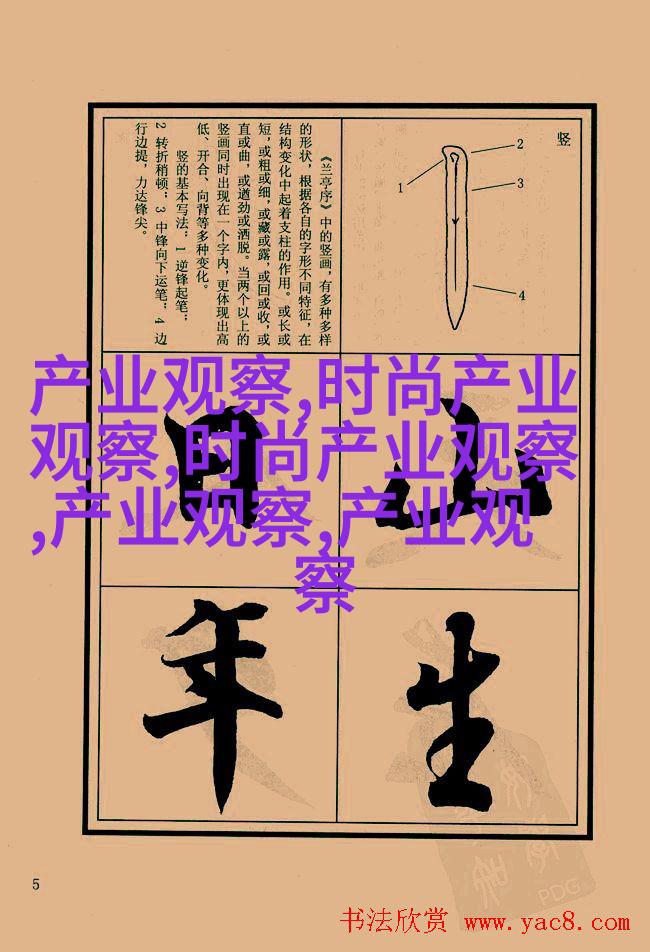 竖
1
2
3
4
《兰亭序》中的竖画，有多种多样
的形状，根据各自的字形不同特征，在
结构变化中起着支柱的作用。或长或
短，或粗或细，或藏或露，或回或收，或
直或曲，或遒劲或洒脱。当两个以上的
竖画同时出现在一个字内，更体现出高
低、开合、向背等多种变化。
竖的基本写法：1 逆锋起笔；
2 转折稍顿；3 中锋向下运笔；4 边
行边提，力达锋尖。
产业观察,时尚产业
观察,时尚产业观察
,产业观察,产业观
察
山
日
生
年
5
PDG
书法欣赏 www.yac8.com